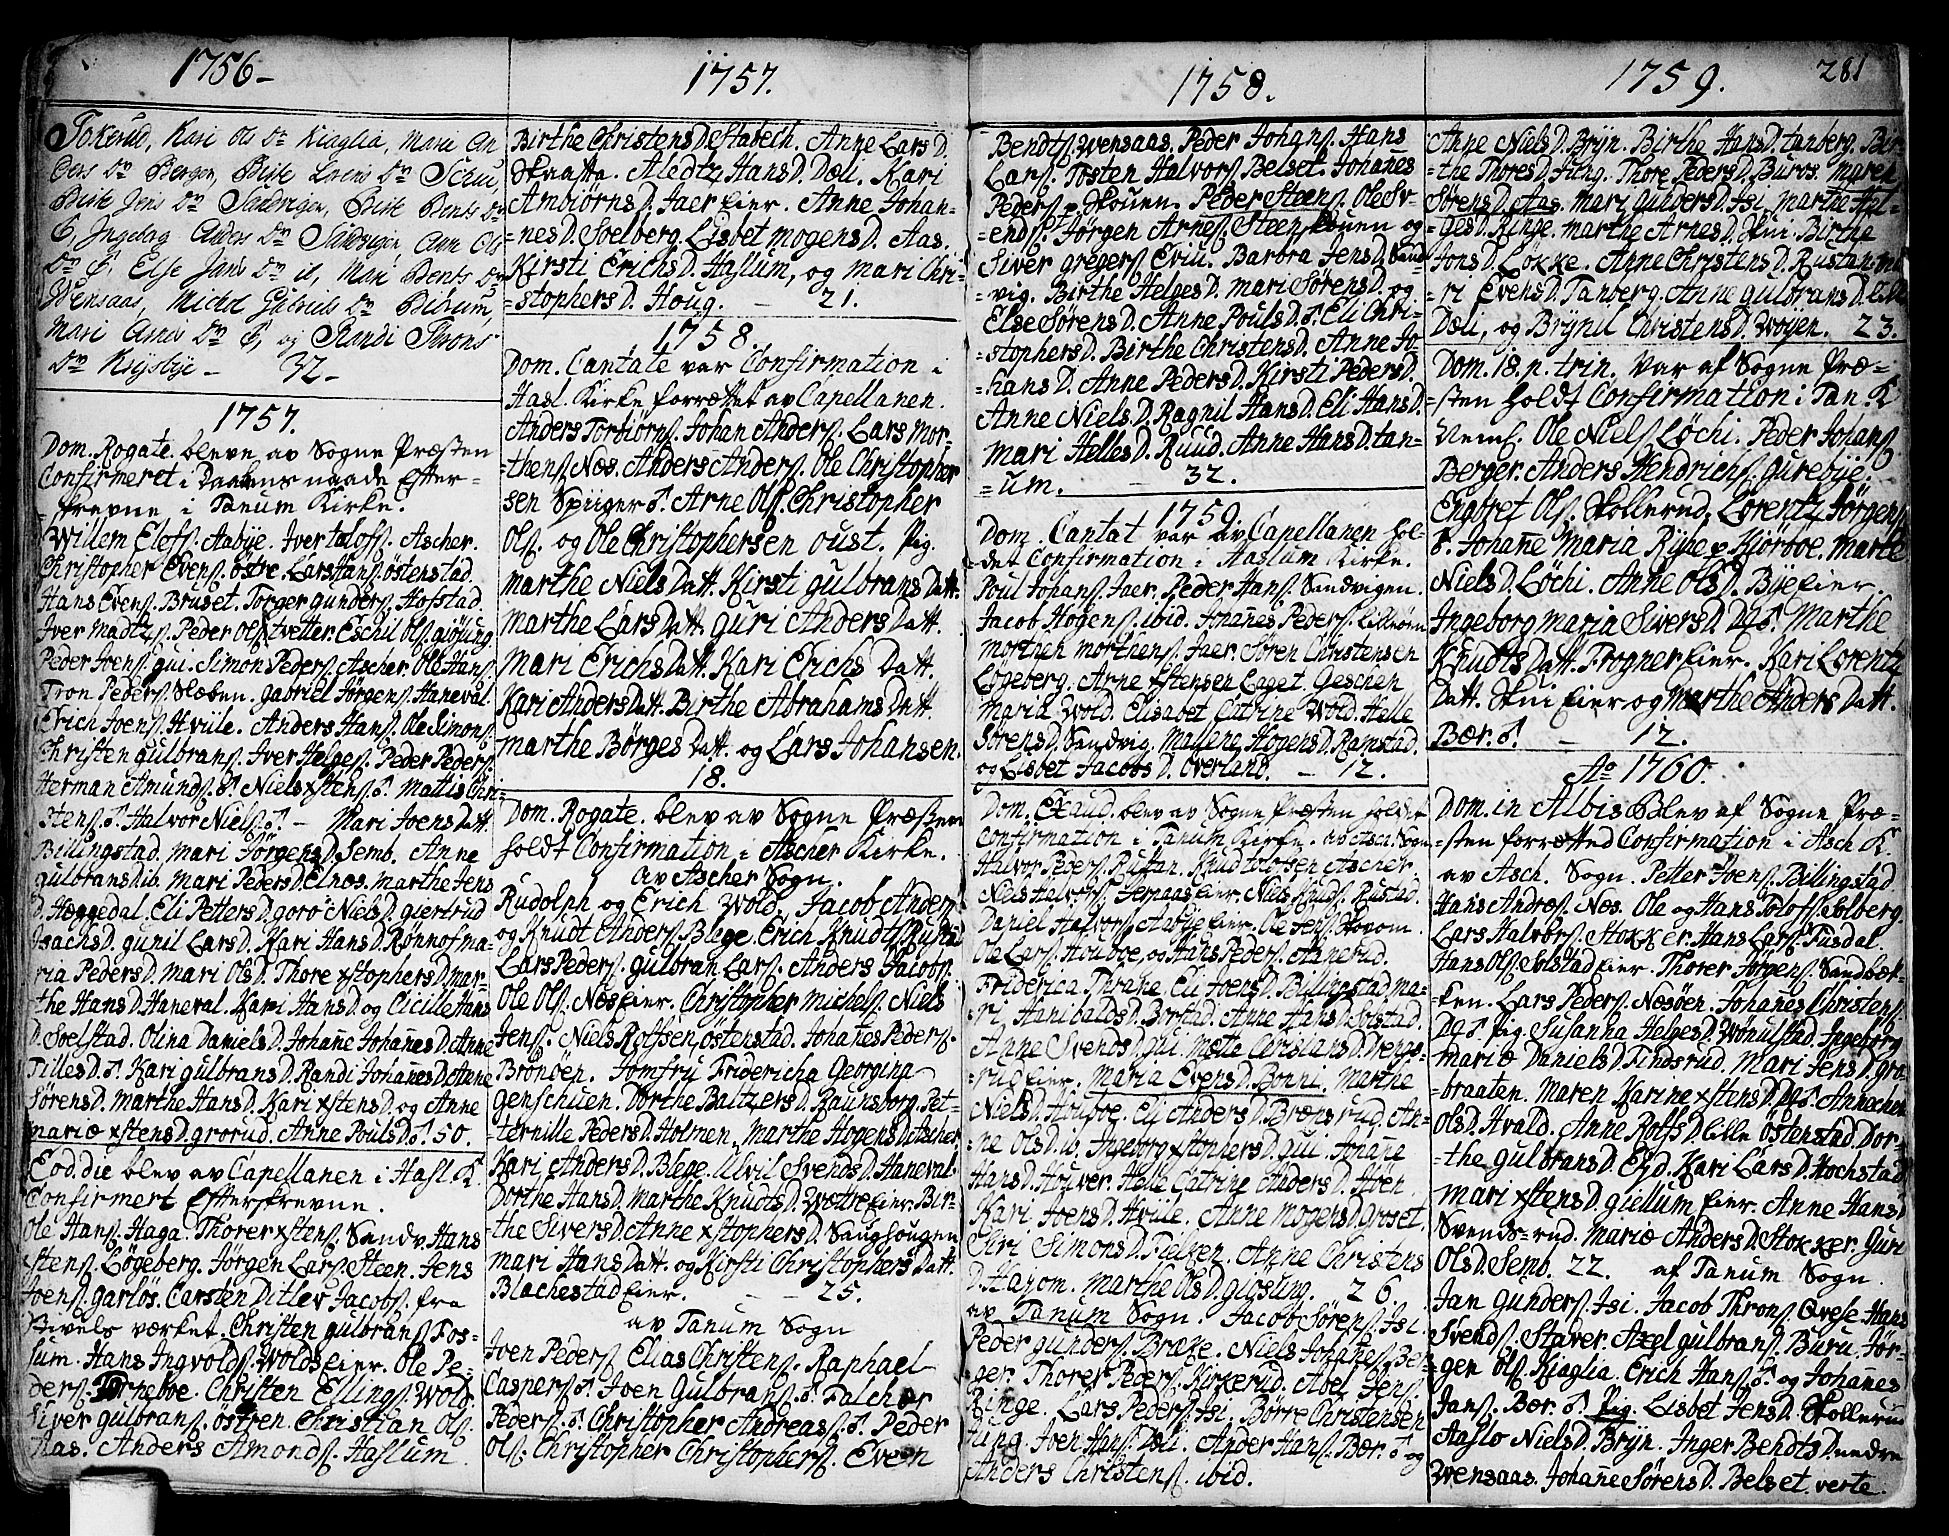 1756-
Tokerud, Kari Ols Dr Kiaglia, Marie An
ders Dr Bergen, Birte Svens Dr Scrui,
Birte Jens Dr Sandvigen, Birte Bents Dr
Ingelaj Anders Dr Sandvigen, Ann Ols
Dr Else Jans Dr il, Mari Bents Dr
Wensaas, Michel Gabriels Dr Blerum,
Mari Arnes Dr og Randi Throns
Dr Krysbye - 32-
1757.
Dom. Rogate. bleve av Sogne Præsten
Confirmeret i Daabens naade Efter-
skrevne i Tanum Kirke.
Willem Elefs. Aabye. Iver tolofs. Ascher.
Christopher Evens. östre. Lars Hans. östenstad.
Hans Evens. Bruset. Torger gunders. Hofstad.
Iver Madtzs. Peder Ols. tvetter. Eschil Ols. giöüng
Peder Joens. gui. Simon Peders. Ascher. Ole Hans.
Tron Peders. Slæben. gabriel Jörgens. Haneval.
Erich Joens. Hvule. Anders Hans. Ole Simons.
Christen gulbrans. Iver Helges. Peder Peders.
Herman Amunds. Niels xstens. Mattis Chri-
stens. Halvor Niels. - Mari Joens Datt.
Billingstad. Mari Jörgens D. Semb. Anne
gulbrans D. ib. Mari Peders D. Elnæs. Marthe Jens
D. Hæggedal. Eli Petters D. goro Niels D. giertrud
Isachs D. gunil Lars D. Kari Hans D. Rönnof ma-
ria Peders D. Mari Ols D. Thore xstophers D. mar-
the Hans D. Haneval. Kari Hans D. og Cicille Hans
D. Solstad. Olina Daniels D. Johane Johanes D. Anne
Tilles D. Kari gulbrans D. Randi Johanes D. Anne
Sörens D. Marthe Hans D. Kari xstens D. og Anne
mariæ xstens D. grorud. Anne Pouls D. 50.
Eod. die blev av Capellanen i Hasl. K.
Confirmert Efterskrevne.
Ole Hans. Haga. Thorer xstens. Sandv. Hans
xstens. Lögeberg. Jörgen Lars. Steen. Jens
Joens. garlös. Carsten Ditlev Jacobs. fra
Bivels værket. Christen gulbrans. Fos-
sum. Hans Ingvolds. Wolds eier. Ole Pe-
ders. Torneboe. Christen Ellings. Wold.
Siver gulbrans. östren. Christian Ols.
Aas. Anders Amonds. Haslum.
1757.
Birthe Christens D. Stabech. Anne Lars D.
Skratta. Aledtz Hans D. Dæli. Kari
Ambiörns D. Jaer Eier. Anne Johan-
nes D. Soelberg. Lisbet Mogens D. Aas.
Kirsti Erichs D. Haslum, og Mari Chri-
stophers D. Houg. - 21.
1758.
Dom. Cantate var Confirmation i
Hasl. Kirke forrettet av Capellanen.
Anders Torbiörns. Johan Anders. Lars Mor-
thens. Næs. Anders Anders. Ole Christopher
sen Spriger. Arne Ols. Christopher
Ols. og Ole Christophersen oust. Pig.
Marthe Niels Datt. Kirsti gulbrans Datt.
Marthe Lars Datt. guri Anders Datt.
Mari Erichs Datt. Kari Erichs Datt.
Kari Anders Datt. Birthe Abrahams Datt.
Marthe Börges Datt. og Lars Johansen.
18.
Dom. Rogate. blev av Sogne Præsten
holdt Confirmation i Ascher Kirke.
av Ascher Sogn.
Rudolph og Erich Wold. Jacob Anders.
og Knudt Anders. Blege. Erich Knudts. Rustad
Lars Peders. gulbran Lars. Anders Jacobs.
Ole Ols. Næs eier. Christopher Michels. Niels
Jens. Niels Rolfsen, östenstad. Johanes Peders.
Brönöen. Jomfru Fridericha Georgina
genschuen. Dorthe Baltzers D. Raunsborg. Pet-
ternille Peders D. Holmen. Marthe Hogens D. Ascher
Kari Anders D. Blege. Alvil Svends D. Haneval.
Dorthe Hans D. Marthe Knudts D. Wøtre Eier. Bir-
the Sivers D. Anne xstophers D. Saughougen
mari Hans Datt. og Kirsti Christophers Datt.
Blachestad Eier. - - 25.
av Tanum Sogn
Joen Peders. Elias Christens. Raphael
Caspers. Joen Gulbrans. Falcher
Peders. Christopher Andreas. Peder
Ols. Christopher Christophers. Even
1758.
Bendts. Wensaas. Peder Johans. Hans
Lars. Tosten Halvors. Belset. Johanes
Peders. p. Skouen. Peder Steens. Ole Sv-
ends. Jörgen Arnes. Steen skouen og
Siver gregers. Eviu. Barbra Jens D. Sand-
vig. Birthe Helges D. Mari Sörens D. og
Else Sörens D. Anne Pouls D. Eli Chri-
stophers D. Birthe Christens D. Anne Jo-
hans D. Anne Peders D. Kirsti Peders D.
Anne Niels D. Ragnil Hans D. Eli Hans D.
Mari Helles D. Ruud. Anne Hans D. tan-
um. - 32.
1759.
Dom. Cantat var av Capellanen hol-
det Confirmation i Haslum Kirke.
Poul Johans. Jaer. Peder Hans. Sandvigen.
Jacob Hogens. ibid. Johanes Peders. Lilleöen
Morthen Morthens. Jaer. Sören Christensen
Lögeberg. Arne Estensen Eaget. Geschen
Maria Wold. Elisabet Catrine Wold. Helle
Sörens D. Sandvig. Mallene Hogens D. Ramstad.
og Lisbet Jacobs D. Overland. - 12.
Dom. Exaud. blev av Sogne Præsten holdet
Confirmation i Tanum Kirke. av Asch. Sogn
Halvor Peders. Rustan. Knud tolofsen Ascher.
Niels Halvors. Jernaas eier. Niels Knuds. Rustad.
Daniel Halvors. Aabye Eier. Ole Jens. Hovom.
Ole Lars. Houboe, og Hans Peders. Hanerud.
Friderica Thrane. Eli Joens D. Billingstad. ma-
ri Hanibalds D. Borstad. Anne Hans D. Solstad.
Anne Svends D. gui. Mette Christians D. Drengs-
rud Eier. Maria Evens D. Bonni. Marthe
Niels D. Houboe. Eli Anders D. Brængsrud. An-
ne Ols D. ib. Ingeborg xstophers D. gui. Johane
Hans D. Houver. Helle Catrine Anders D. Höen.
Kari Joens D. Hvule. Anne Mogens D. Groset.
Siri Simons D. Fielken. Anne Christens
D. Hajom. Marthe Ols D. giösung. 26.
av Tanum Sogn. Jacob Sörens. Isi.
Peder gunders. Bræke. Niels Johanes. Ber-
ger. Thorer Peders. Kirkerud. Abel Jens.
Ringe. Lars Peders. Isi. Börre Christensen
Jung. Joen Hans. Dæli. Ander Hans. Bær. og
Anders Christens. ibid.
1759. 281
Anne Niels D. Bryn. Birthe Hans D. tanberg. Bir-
the Thores D. Jung. Thore Peders D. Buros. Maren
Sörens D. Aas. Mari Gulbers D. Isi. Marthe Hel-
ges D. Ringe. Marthe Arnes D. Skui. Birthe
Jons D. Løkke. Anne Christens D. Rustan. Ma-
ri Evens D. Tanberg. Anne gulbrans D. Lille
Dæli, og Brynil Christens D. Wöyen. 23.
Dom. 18. n. trin. Var af Sogne Præ-
sten holdt Confirmation i Tan. K
Nemf. Ole Niels. Löchi. Peder Johans.
Berger. Anders Hendrichs. gurebye.
Engbret Ols. Skollerud. Lorentz Jörgens
. Johanne Maria Rype p. Kjörboe. Marte
Niels D. Löchi. Anne Ols D. Bye Eier
Ingeborg Maria Sivers D. Do. Marthe
Knudts Datt. Frogner Eier. Kari Lorentz
Datt. Skui Eier og Marthe Anders Datt.
Bær. - 12.
Ao 1760.
Dom. in Albis Blev af Sogne Præ-
sten forretted Confirmation i Asch K
av Asch. Sogn. Petter Joens. Billingstad
Hans Andres. Næs. Ole og Hans Tolofs. Solberg.
Lars Halvors. Stokker. Hans Lars. Fusdal.
Hans Ols. Solstad Eier. Thorer Jörgens. Sandbæk-
ken. Lars Peders. Næsöen. Johanes Christens.
Do. Pig. Susanna Helges D. Wonulstad. Ingeborg
Mariæ Daniels D. Findsrud. Mari Jens D. gra-
braaten. Maren Karine xstens D. Do. Anne chat.
Ols D. Hvald. Anne Rolfs D. lille östenstad. Dor-
the gulbrans D. Eyd. Kari Lars D. Hochstad
Mari xstens D. giellum Eier. Anne Hans D.
Svends-rud. Mariæ Anders D. Stokker. Guri
Ols D. Semb. 22. af Tanum Sogn.
Jan gunders. Isi. Jacob Throns. Qvese. Hans
Svends. Staver. Axel gulbrans. Buru. Jör-
gen Ols. Kiaglia. Erich Hans. og Johanes
Jans. Bær. Pig. Lisbet Jens D. Skollerud
Aaslo Niels D. Bryn. Inger Bendts D. nedre
Wensaas. Johanne Sörens D. Belset. verte.